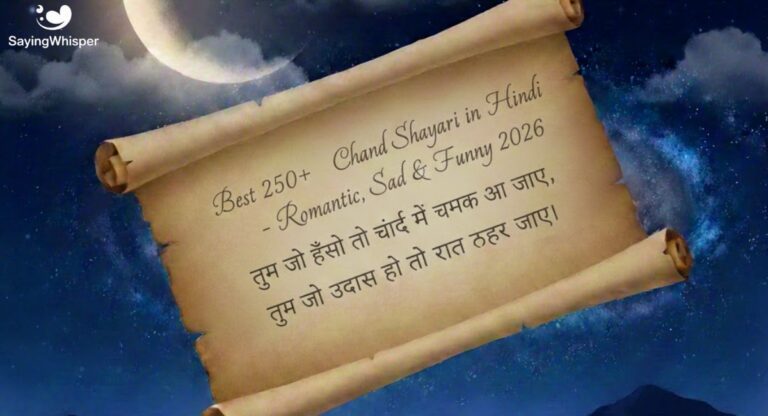 SayingWhisper
Best 250+ Chand Shayari in Hindi
- Romantic, Sad & Funny 2026
तुम जो हँसो तो चांर्द में चमक आ जाए,
तुम जो उदास हो तो रात ठहर जाए।